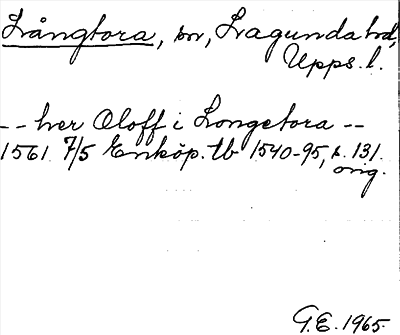 Långtora, sn, Lagunda hd,
Upps. l.
-- her Oloff i Longetora --
1561 7/5 Enköp. tb 1540-95, s. 131.
orig.
G.E. 1965.